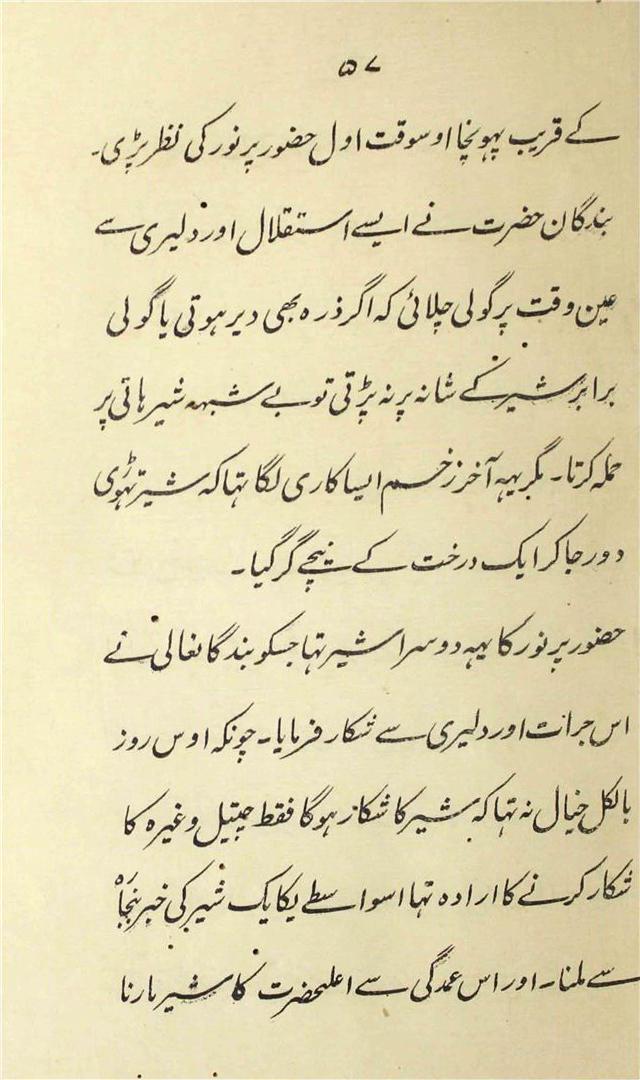 ۵۷
کے قریب پہونچا اوسوقت اول حضور پرنور کی نظر پڑی۔
بندگان حضرت نے ایسے استقلال اور دلیری سے
عین وقت پر گولی چلائی کہ اگر ذرہ بھی دیر ہوتی یا گولی
برابر شیر کے شانہ پر نہ پڑتی تو بے شبہہ شیر ہاتی پر
حملہ کرتا۔ مگر یہہ آخر زخم ایسا کاری لگا تہا کہ شیر تہوڑی
دور جا کر ایک درخت کے نیچے گر گیا۔
حضور پرنور کا یہہ دوسرا شیر تہا جسکو بندگانعالی نے
اس جرات اور دلیری سے شکار فرمایا۔ چونکہ اوس روز
بالکل خیال نہ تہا کہ شیر کا شکار ہوگا فقط چیتل وغیرہ کا
شکار کرنے کا ارادہ تہا اسواسطے یکایک شیر کی خبر
سے ملنا۔ اور اس عمدگی سے اعلیحضرت کا شیر مارنا